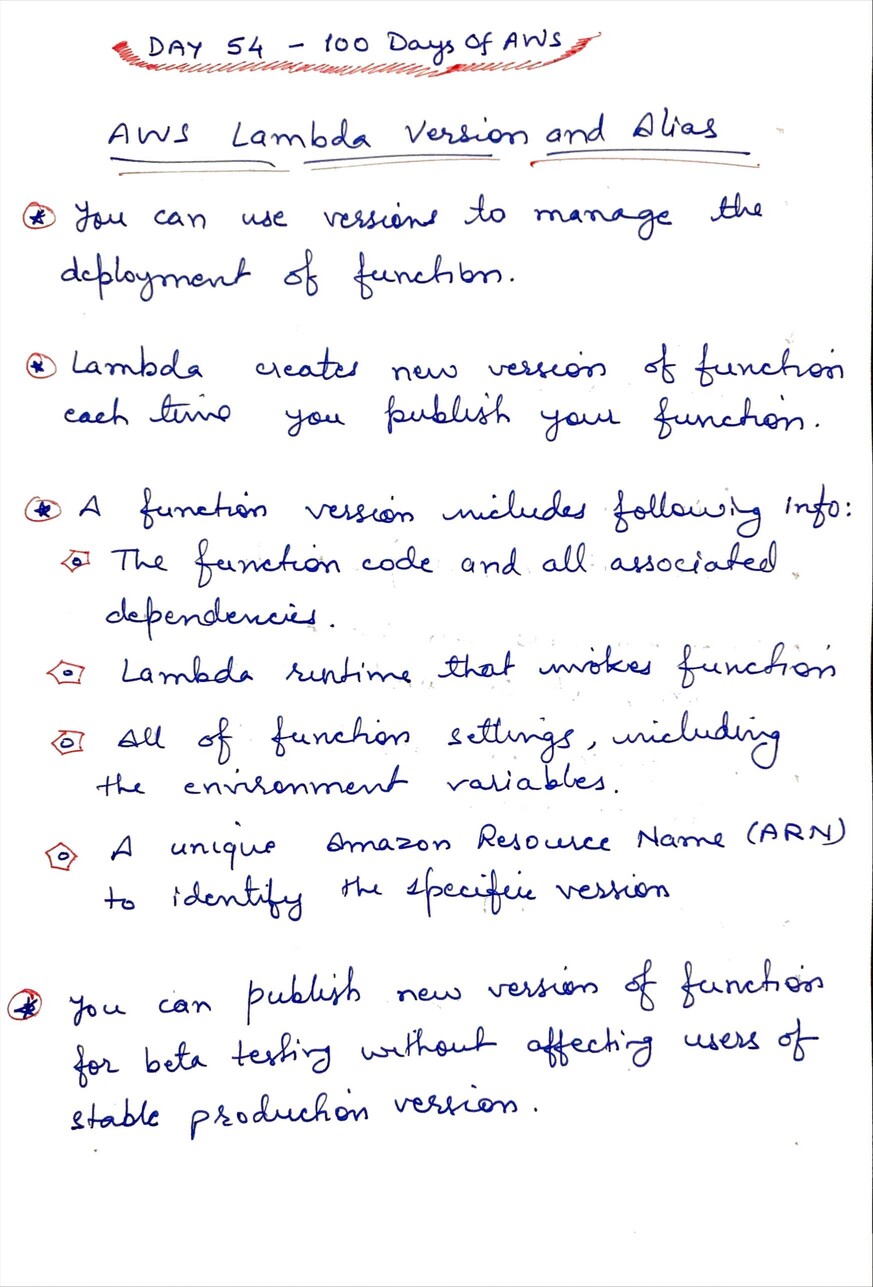 DAY 54 - 100 Days Of AWS
AWS Lambda Version and Alias
You can use versions to manage the
deployment of function.
Lambda creates new version of function
each time you publish your function.
A function version includes following info:
The function code and all associated
dependencies.
Lambda runtime that invokes function
All of function settings, including
the environment variables.
A unique Amazon Resource Name (ARN)
to identify the specific version
You can publish new version of function
for beta testing without affecting users of
stable production version.